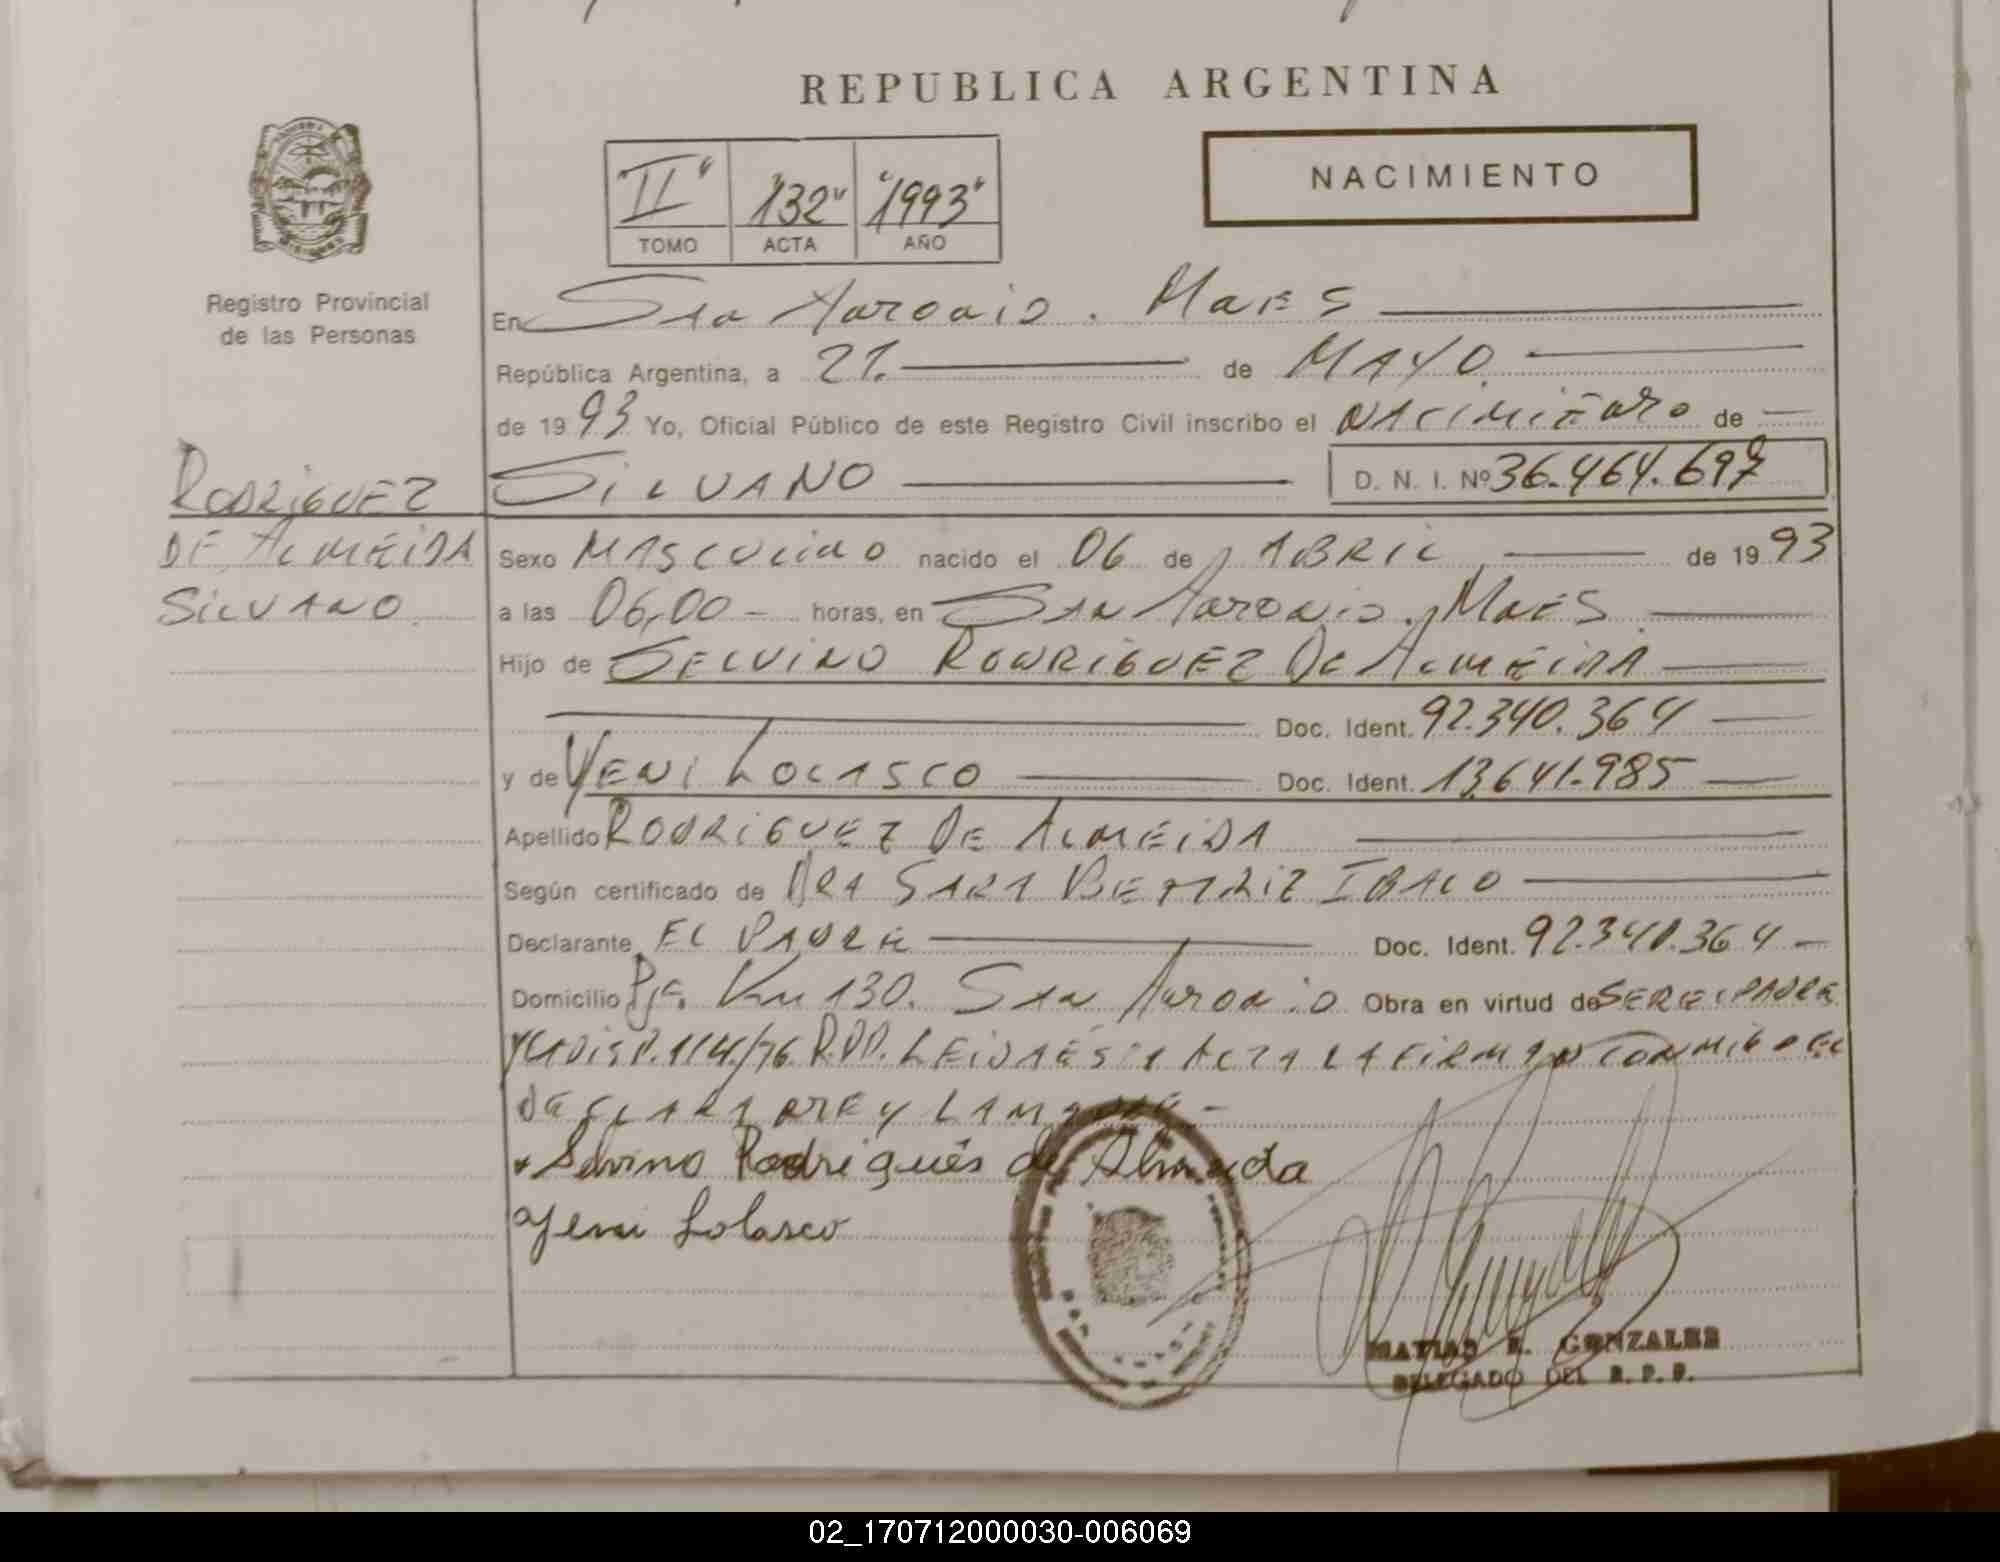 REPUBLICA ARGENTINA
NACIMIENTO
"II" "132" "1993"
TOMO ACTA AÑO
Registro Provincial
de las Personas
En San Antonio. Mnes
República Argentina, a 21. de MAYO.
de 1993 Yo, Oficial Público de este Registro Civil inscribo el NACIMIENTO de
SILVANO D. N. I. Nº 36.464.697
RODRIGUEZ
DE ALMEIDA
SILVANO.
Sexo MASCULINO nacido el 06 de ABRIL de 1993
a las 06,00 - horas, en SAN ANTONIO. MNES.
Hijo de SELVINO RODRIGUEZ DE ALMEIDA
Doc. Ident. 92.340.364
y de YENI LOLASCO Doc. Ident. 13.641.985
Apellido RODRIGUEZ DE ALMEIDA
Según certificado de DRA SARA BEATRIZ
Declarante EL PADRE Doc. Ident. 92.340.364
Domicilio Pje. Km 130. San Antonio Obra en virtud de SER EL PADRE
Y LA DISP. 114/76 R.P.P. LEIDA ESTA ACTA LA FIRMAN CONMIGO EL
DECLARANTE Y LA MADRE -
Selvino Rodrigués de Almeida
Yeni Lolasco
MATIAS R. GONZALES
DELEGADO DEL R. P. P.
02_170712000030-006069